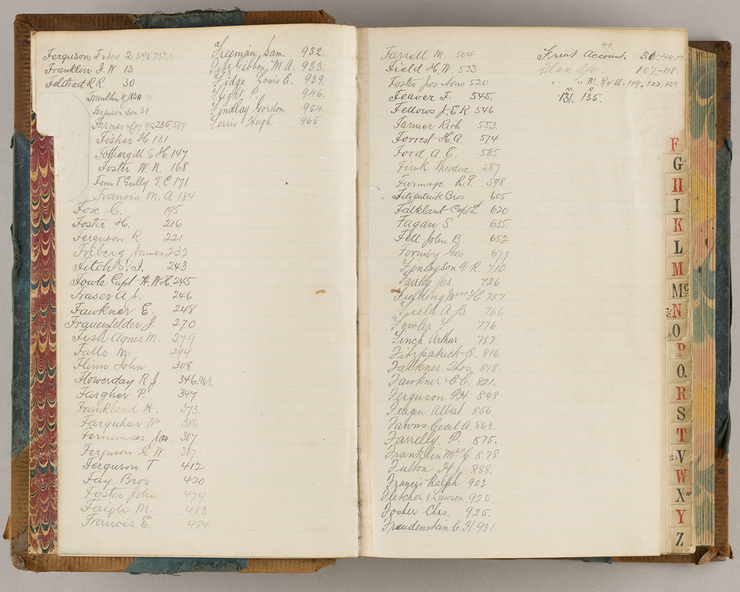 Ferguson J 2, 596, 737
Franklin J. W 13
Feltrod R R 30
Franklin W
Ferguson 31
Farmer 90 256, 589
Fisher H 131
Fothergill S H 147
Foster W. R. 168
Gully S. C 171
Francis M. A 184
Fox C. 195
Foster H. 216
Ferguson R. 221
Friberg James 232
Fitch S. J. 243
Fowle Capt W. H 245
Fraser A. J. 246
Fawkner E. 248
Frauenfelder J. 270
Fysh Agnes M. 279
Falls M 294
Flinn John 308
Flowerday R J 346, 969
Fargher P. 347
Frankland H. 373
Farquhar Wm 386
Fernandes Jas 387
Ferguson E. W. 387
Ferguson T 412
Fay Bros 420
Foster John 479
Faigh M. 483
Francis E. 484
Freeman Sam. 932.
M. A. 933.
Fidge Louis E. 939.
Fight P. 946.
Findlay Gordon 954.
Ferris Hugh 965
Farrell M. 504
Field H. W. 533
Foster Jos Sons 520
Feaver F. 545.
Fellows J. E R 546
Farmer Rich 553.
Forrest H. A 574
Ford A. E. 585.
Fink Theodore 587
Furmage R. P. 598
Fitzpatrick Bros 605
Falkland Capt L 620
Fagan S. 635.
Fell John B. 652
Formby Geo 677
Finlayson W R. 710
Fairley Jas. 726
Fuchling H 757.
Field A B 766
Fowler F 776.
Finch Arthur 787.
Fitzpatrick E. 816.
Faulkner Thos 818.
Fawkner E C. 821.
Ferguson P. H. 898
Feagen Albert 856
Fawns Cecil A. 863.
Farrelly P. 875.
Franklin Mrs C 878.
Fulton H J. 888.
Francis Ralph 903
Fletcher & Lawson 920
Foster Chas. 925.
Freudenstein C. H. 931.
49
Fruit Account 30
107-118
M. R & A. 119, 123, 129
131. 135.
F
G
H
I
K
L
M
Mc
N
O
P
Q.
R
S
T
V
W
X
Y
Z